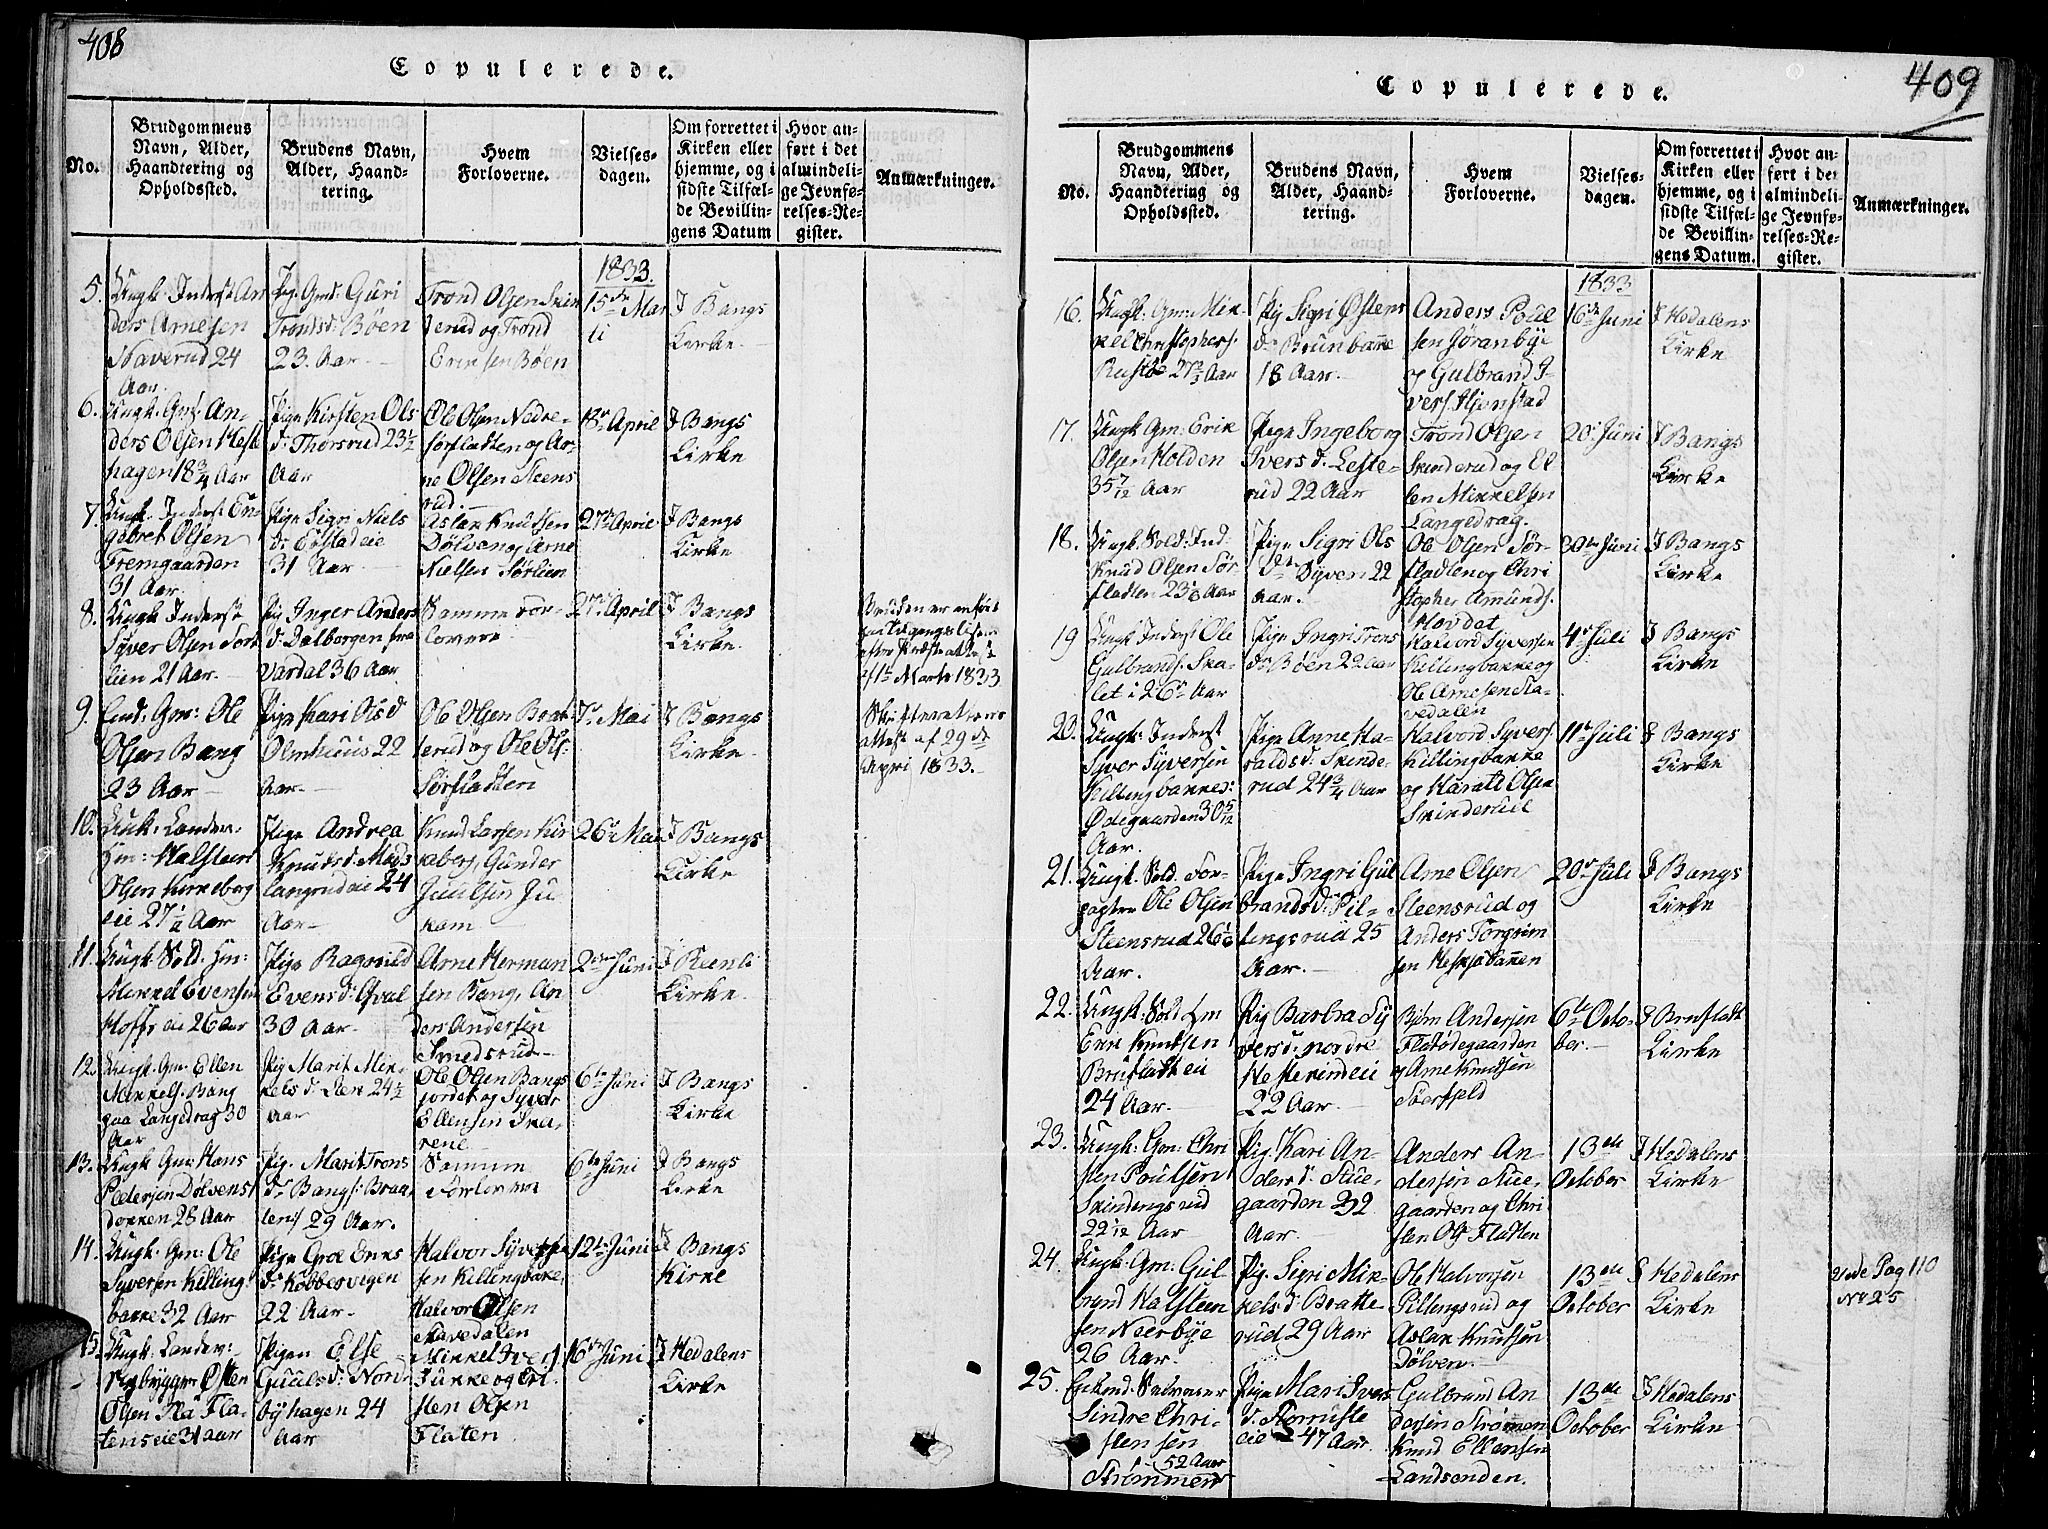 408
Copulerede.
No.
Brudgommens
Navn, Alder,
Haandtering og
Opholdssted.
Brudens Navn,
Alder, Haand-
tering.
Hvem
Forloverne.
Vielses-
dagen.
Om forrettet i
Kirken eller
hjemme, og i
sidste Tilfæl-
de Bevillin-
gens Datum
Hvor an-
ført i det
almindeli-
ge Jevnfø-
relses-Re-
gister.
Anmærkninger.
1833
5.
Ungk: Inderst An
ders Arnesen
Haverud 24
Aar.
Pig. Gmd. Guri
Tronds d: Böen
23. Aar.
Trond Olsen Skin
derud og Trond
Eriksen Böen
15de Mar
ti
I Bangs
Kirke.
6.
Ungk. Gmd. An-
ders Olsen Hest
hagen 18 3/4 Aar
Pige Kirsten Ols
d: Thorsrud 23 1/2
Aar
Ole Olsen Nedre-
Sørfladten og Ar-
ne Olsen Steens
rud.
18de April
I Bangs
Kirke
7.
Ungk. Inderst En-
gebret Olsen
Fremgaarden
31 Aar.
Pige Sigri Niels
d: Eøstad eie
31 Aar
Aslak Knutsen
Dölven og Arne
Nielsen Sørlien
27de April
I Bangs
Kirke
8.
Ungk Inderst
Syver Olsen Sort
lien 21 Aar.
Pig Inger Anders
d: Dalborgen fra
Vardal 36 Aar
Samme For-
lovere
27de April
I Bangs
Kirke.
Bruden er anført
Præsteattest
af 1ste Marts 1833
9.
Gmd: Gm: Ole
Olsen Bang
23 Aar
Pige Kari Ols d
Olmhuus 22
Aar.
Ole Olsen Brat
terud og Ole Ols:
Sørfladten
7de Mai
I Bangs
Kirke.
Skifteretten
attest af 29 de
April 1833.
10.
Ungk: Landev.
Hm: Halsteen
Olsen Kirkeberg
eie 27 1/2 Aar
Pige Andrea
Knuds d: Mads
langrud eie 24
Aar
Knud Larsen Kir
keberg, Gunder
Juulsen Ju
kam
26de Mai
I Bangs
Kirke
11.
Ungk Sold. Hm:
Mikkel Evensen
Hoffs eie 26 Aar
Pige Ragnild
Evens d: Qval
30 Aar.
Arne Herman
sen Bang, An
ders Andersen
Smedsrud
2den Juni
I Reenli
Kirke.
12.
Ungk. Gm. Ellen
Mikkels. Bang
paa Langedrag 30
Aar
Pig Marit Mik-
kels d: Lien 24 1/2
Aar
Ole Olsen Bangs
jordet og Syver
Ellensen Ska-
rene
6te Juni
I Bangs
Kirke
13.
Ungk Gm: Hans
Pedersen Dölvens
dokken 28 Aar
Pig. Marit Trons
dr Bangs: Braa
ten 29 Aar.
Samme
Forlovere
6te Juni
I Bangs
Kirke
14.
Ungk. Gm: Ole
Syversen Killing
bakke 32 Aar
Pige Groe Eriks
dr Kobbervigen
22 Aar.
Halvor Syver
sen Killingbakke,
Halvor Olsen
Stavedalen
12te Juni
I Bangs
Kirke
15.
Ungk. Landev:
rugbygger Østen
Olsen Flå Fla-
tens eie 31 aar
Pigen Else
Guuls d: Nord
byhagen 24
Aar
Mikkel Ivers:
Jukke og Cri
sten Olsen
Flaten
16de Juni
I Hedalens
Kirke
409
Copulerede.
No.
Brudgommens
Navn, Alder,
Haandtering og
Opholdssted.
Brudens Navn,
Alder, Haand-
tering.
Hvem
Forloverne.
Vielses-
dagen.
Om forrettet i
Kirken eller
hjemme, og i
sidste Tilfæl-
de Bevillin-
gens Datum.
Hvor an-
ført i det
almindeli-
ge Jevnfø-
relses-Re-
gister.
Anmærkninger.
1833
16.
Ungk: Gm: Mik-
kel Christophers:
Rustöe 27 2/3 Aar
Pig Sigri Østens
dr Brunbakke
18 Aar.
Anders Poul
sen Jøranbye
og Gulbrand I-
vers. Hjemstad
16de Juni
I Hedalens
Kirke
17.
Ungk Gm: Erik
Olsen Holden
35 7/12 Aar
Pige Ingeborg
Ivers d: Leste-
rud 22 Aar
Trond Olsen
Skinderud og El
len Mikkelsen
Langedrag.
20de Juni
I Bangs
Kirke
18.
Ungk. Sold: Ind:
Knud Olsen Sør-
fladten 23 1/6 Aar
Pige Sigri Ols
dr Dyven 22
Aar.
Ole Olsen Sør-
fladten og Chri
stopher Amunds.
Hovdet
30te Juni
I Bangs
Kirke
19
Ungk Inderst Ole
Gulbrands. Ska-
let i 26de Aar
Pige Ingri Trons
dr Böen 22 Aar
Halvord Syversen
Killingbakke og
Ole Arnesen Sta-
vedalen
4de Juli
I Bangs
Kirke
20.
Ungk: Inderst
Syver Syversen
Killingbakkes:
Ødegaarden 30 5/12
Aar.
Pige Anne Ha-
ralds d: Skinde-
rud 24 3/4 Aar
Halvord Syvers.
Killingbakke
og Harald Olsen
Skinderud
11te Juli
I Bangs
Kirke
21.
Ungk. Sold. For-
pagter Ole Olsen
Steensrud 26 1/6
Aar.
Pige Ingri Gul
brands d: Pil-
lengsrud 25
Aar.
Arne Olsen
Steensrud og
Anders Torgrim
sen Heskjebakken
20de Juli
I Bangs
Kirke
22.
Ungk. Sold Hm
Erik Knutsen
Bruflatt eie
24 Aar.
Pig Barbra Sy
vers d: nordre
Hesterind eie
22 Aar.
Bjørn Andersen
Flatødegaarden
og Arne Knudsen
Søersfjeld
6te Octo-
ber.
I Brufladt
Kirke
23.
Ungk. Gm: Chri
sten Poulsen
Skindengsrud
22 1/12 Aar
Pig. Kari An-
ders d: Stue-
gaarden 32
Aar.
Anders An-
dersen Stue-
gaarden og Chri
sten Ols Flatten
13de
October
I Hedalens
Kirke
24.
Ungk. Gm: Gul
brand Halsteen
sen Neerbye
26 Aar.
Pig. Sigri Mik-
kels d: Bratte-
rud 29 Aar
Ole Halvorsen
Pillengsrud og
Aslak Knutsen
Dölven
13de
October
I Hedalens
Kirke
Vide Pag 110
No 25
25.
Enkemd. Selveier
Sindre Chri-
stensen
52 Aar
Strømmen
Pige Mari Ivers
d. Storruste
eie 47 Aar
Gulbrand An
dersen Strømen
Knud Ellensen
Landsenden.
13de
October
I Hedalens
Kirke